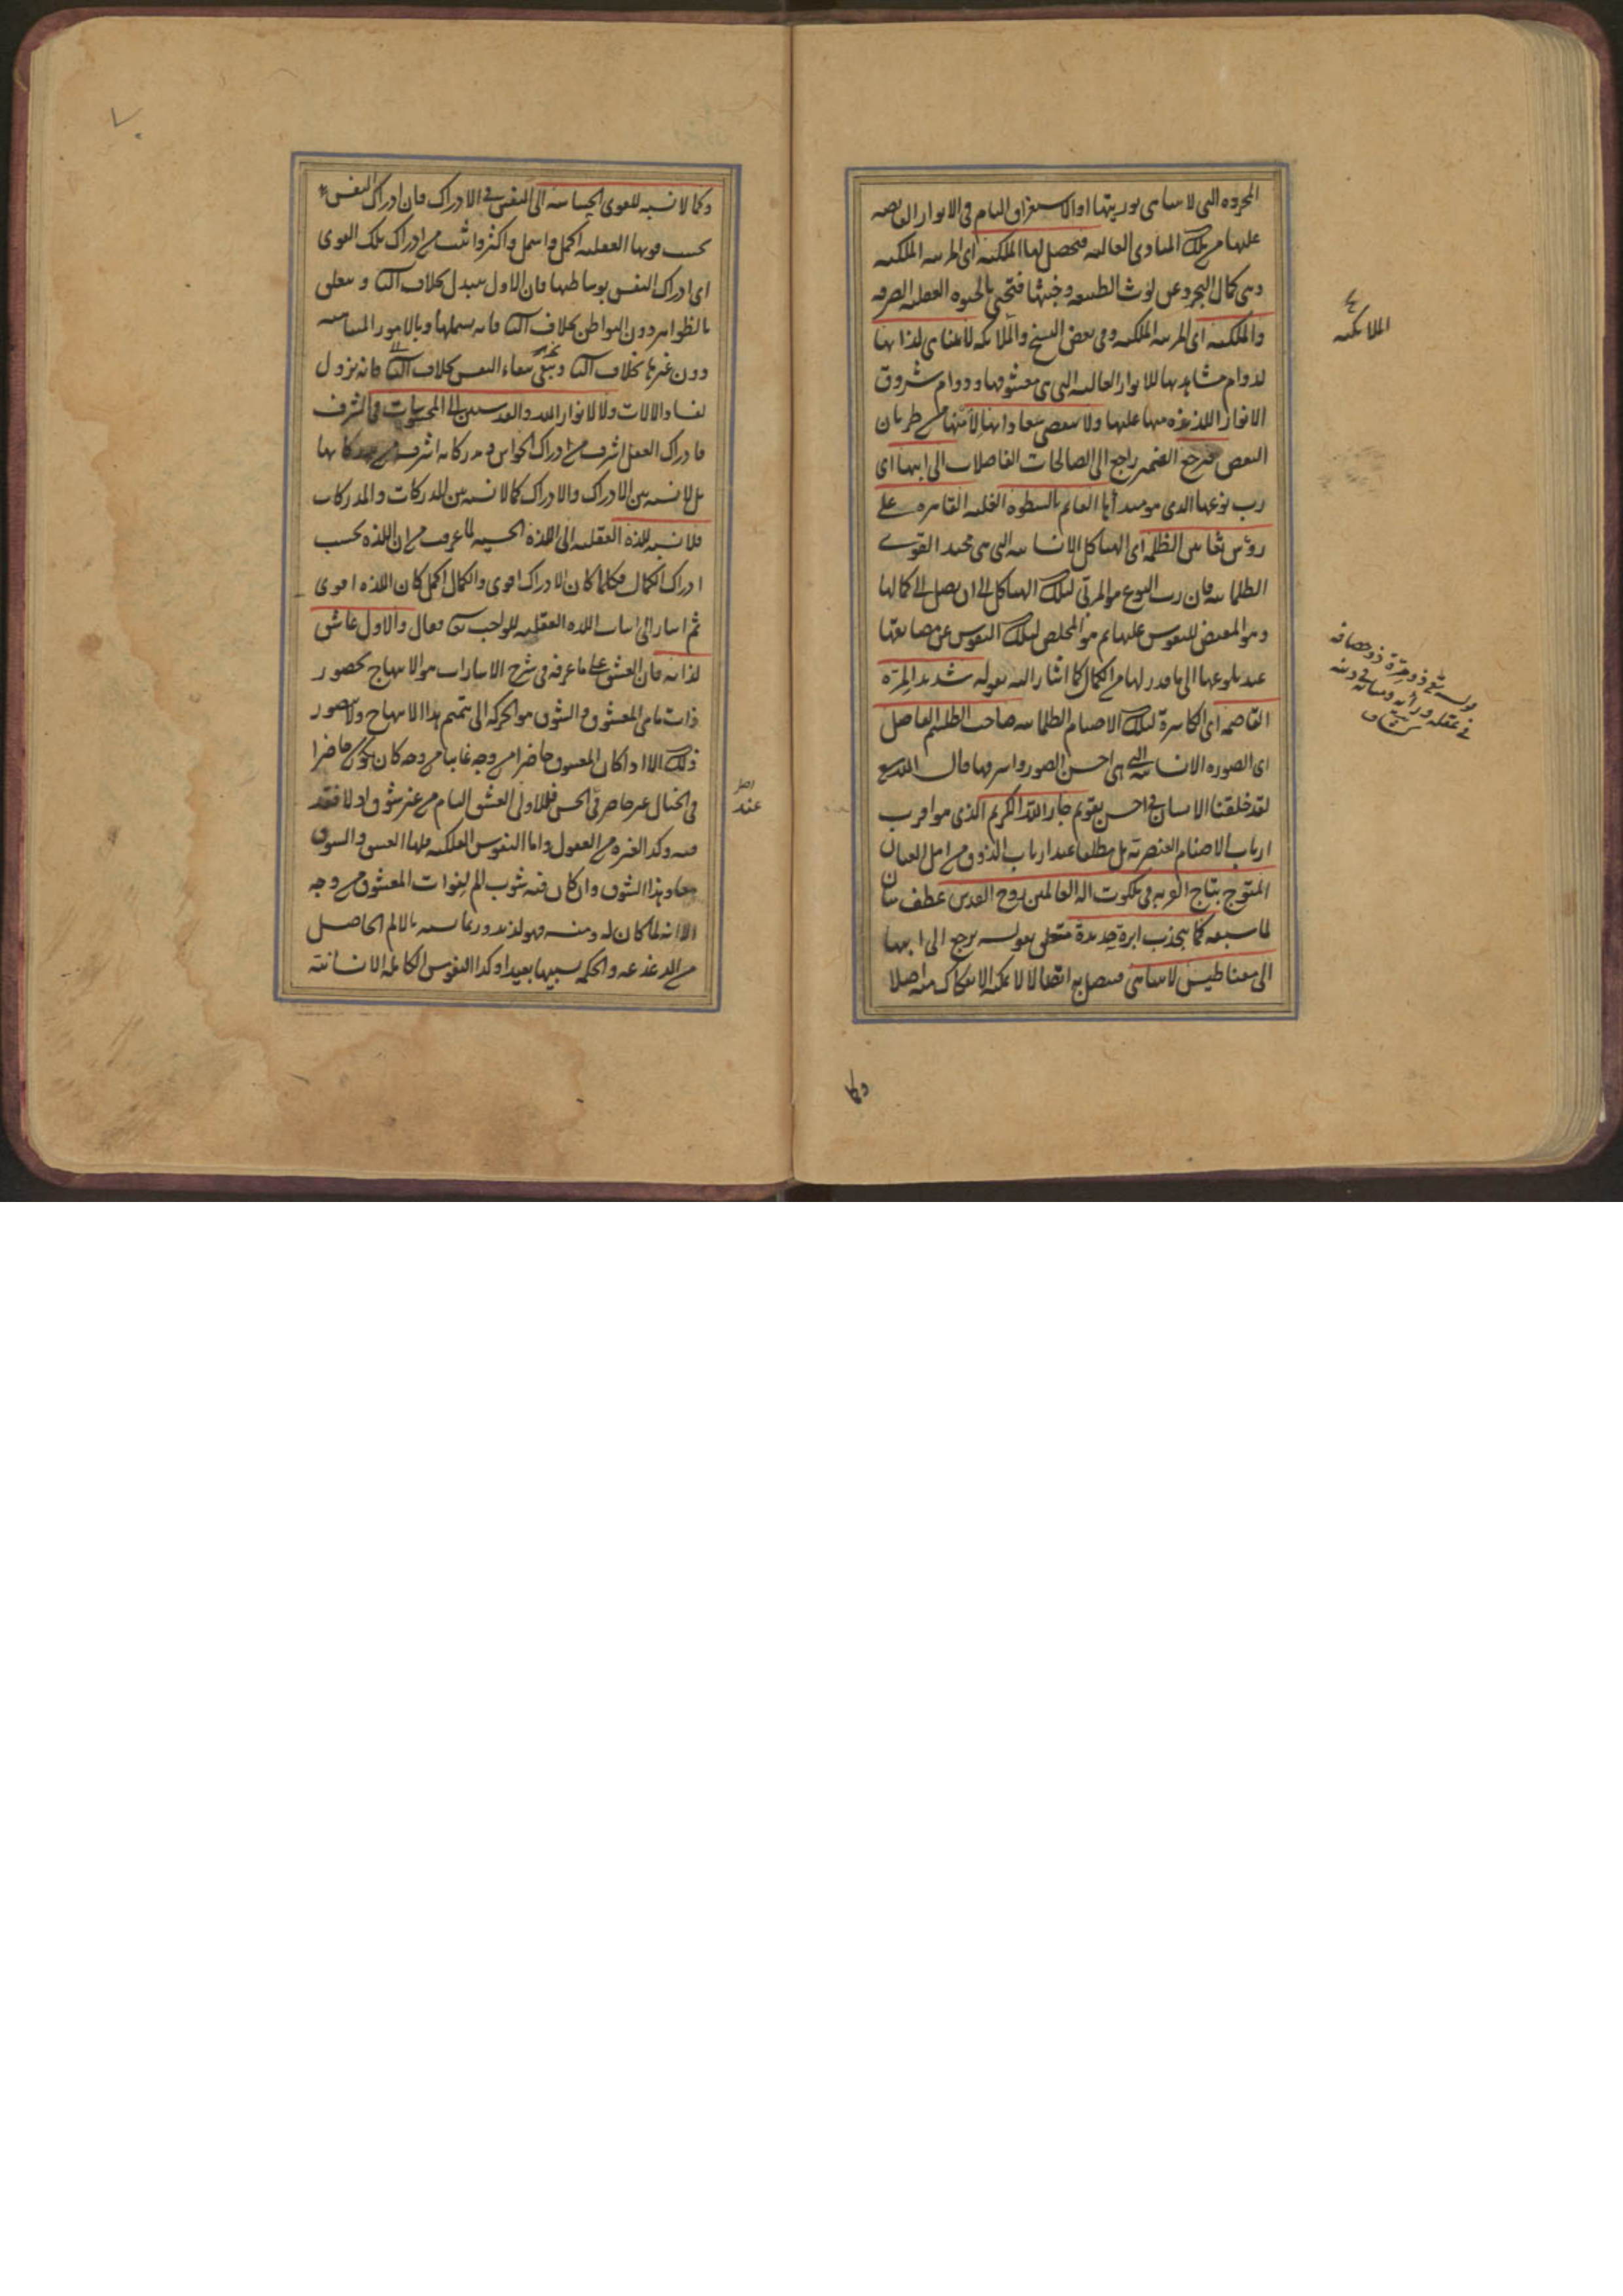 المجرده التى لا تتناهى نوريتها او الاستغراق التام فى الانوار الفايضه
عليها من تلك المبادى العاليه فتحصل لها الملكيه اى المرتبه الملكيه
وهى كمال التجرد عن لوث الطبيعه وخبثها فتحيى بالحيوه العقليه الصرفه
والملكيه اى المرتبه الملكيه وفى بعض النسخ والملائكه لا تتناهى لذاتها
لدوام مشاهدتها للانوار العاليه التى هى معشوقها ودوام شروق
الانوار اللذيذه منها عليها ولا تنقص سعاداتها لامنها من طريان
النقص فترجع الضمير راجع الى الصالحات الفاضلات الى ابيها اى
رب نوعها الذى هو مبدأها القايم بالسطوه الغلبه القاهره على
رؤس الظلمه اى الهياكل الانسانيه التى هى القوى
الظلمانيه فان رب النوع هو المربى لتلك الهياكل الى ان يصل الى كمالها
وهو المفيض للنفوس عليها ثم هو المخلص لتلك النفوس عن
عند بلوغها الى ما قدر لها من الكمال كما اشار اليه بقوله شديد المرّه
القاصمه اى الكاسرة لتلك الاصنام الظلمانيه صاحب الطلسم الفاضل
اى الصوره الانسانيه التى هى احسن الصور واشرفها قال الله تع
لقد خلقنا الانسان فى احسن تقويم جار الله الكريم الذى هو اقرب
ارباب الاصنام العنصريه بل مطلقا عند ارباب الذوق من اهل العيان
المتوج بتاج القربه فى ملكوت اله العالمين روح القدس عطف بيان
لما سبقه كما ينجذب ابرة حديدة متعلق بقوله يرجع الى ابيها
الى مغناطيس لا تتناهى فتتصل به اتصالا لا يمكن الانفكاك منه اصلا
وكما
الملائكه
قوله تع ذو مرة ذو حصافه
فى عقله ورأيه ومتانه فى دينه
كشاف
وكما لا نسبه للقوى الحساسه الى النفس فى الادراك فان ادراك النفس
بحسب قوتها العقليه اكمل واشمل واكثر واثبت من ادراك تلك القوى
اى ادراك النفس بوساطتها فان الاول يتبدل بخلاف الثانى ويتعلق
بالظواهر دون البواطن بخلاف الثانى فانه يشملها وبالامور المتناهيه
دون غيرها بخلاف الثانى ويبقى ببقاء النفس بخلاف الثانى فانه يزول
بفساد الالات ولا لانوار الله والقدسيين الى المحسوسات فى الشرف
فادراك العقل اشرف من ادراك الحواس ومدركاته اشرف من مدركاتها
بل لا نسبه بين الادراك والادراك كما لا نسبه بين المدركات والمدركات
فلا نسبه للذه العقليه الى اللذه الحسيه لما عرفت من ان اللذه بحسب
ادراك الكمال فكلما كان الادراك اقوى والكمال اكمل كان اللذه اقوى
ثم اشار الى اثبات اللذه العقليه للواجب تعالى فقال والاول عاشق
لذاته فان العشق على ما عرفه فى شرح الاشارات هو الابتهاج بحضور
ذات ما هى المعشوق والشوق هو الحركه الى تتميم هذا الابتهاج ولا يتصور
ذلك الا اذا كان المعشوق حاضرا من وجه غايبا من وجه كان يكون حاضرا
فى الخيال غير حاضر فى الحس فللاول العشق التام من غير شوق اذ لا فقد
فيه وكذا لغيره من العقول واما النفوس الفلكيه فلها العشق والشوق
معا وهذا الشوق وان كان فيه شوب الم لفوات المعشوق من وجه
الا انه لما كان له ومنه فهو لذيذ وربما يشبه بالالم الحاصل
من الدغدغه والحكه تشبيها بعيدا وكذا النفوس الكامله الانسانيه
عند
٧